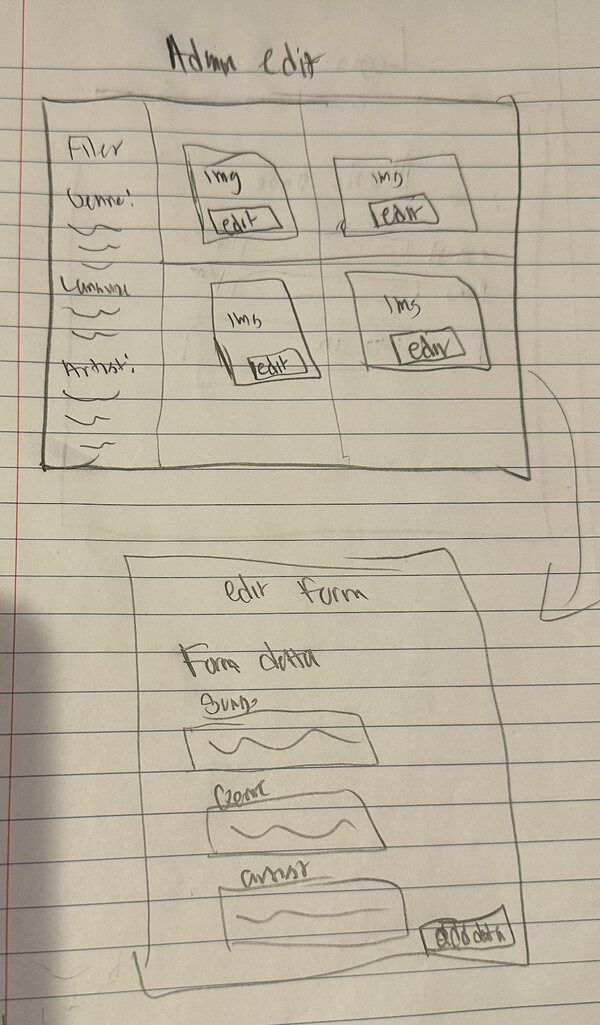 Admin edit
Filer
Genre:
Artist:
img
edit
img
edit
img
edit
img
edit
edit form
Form data
Genre
artist